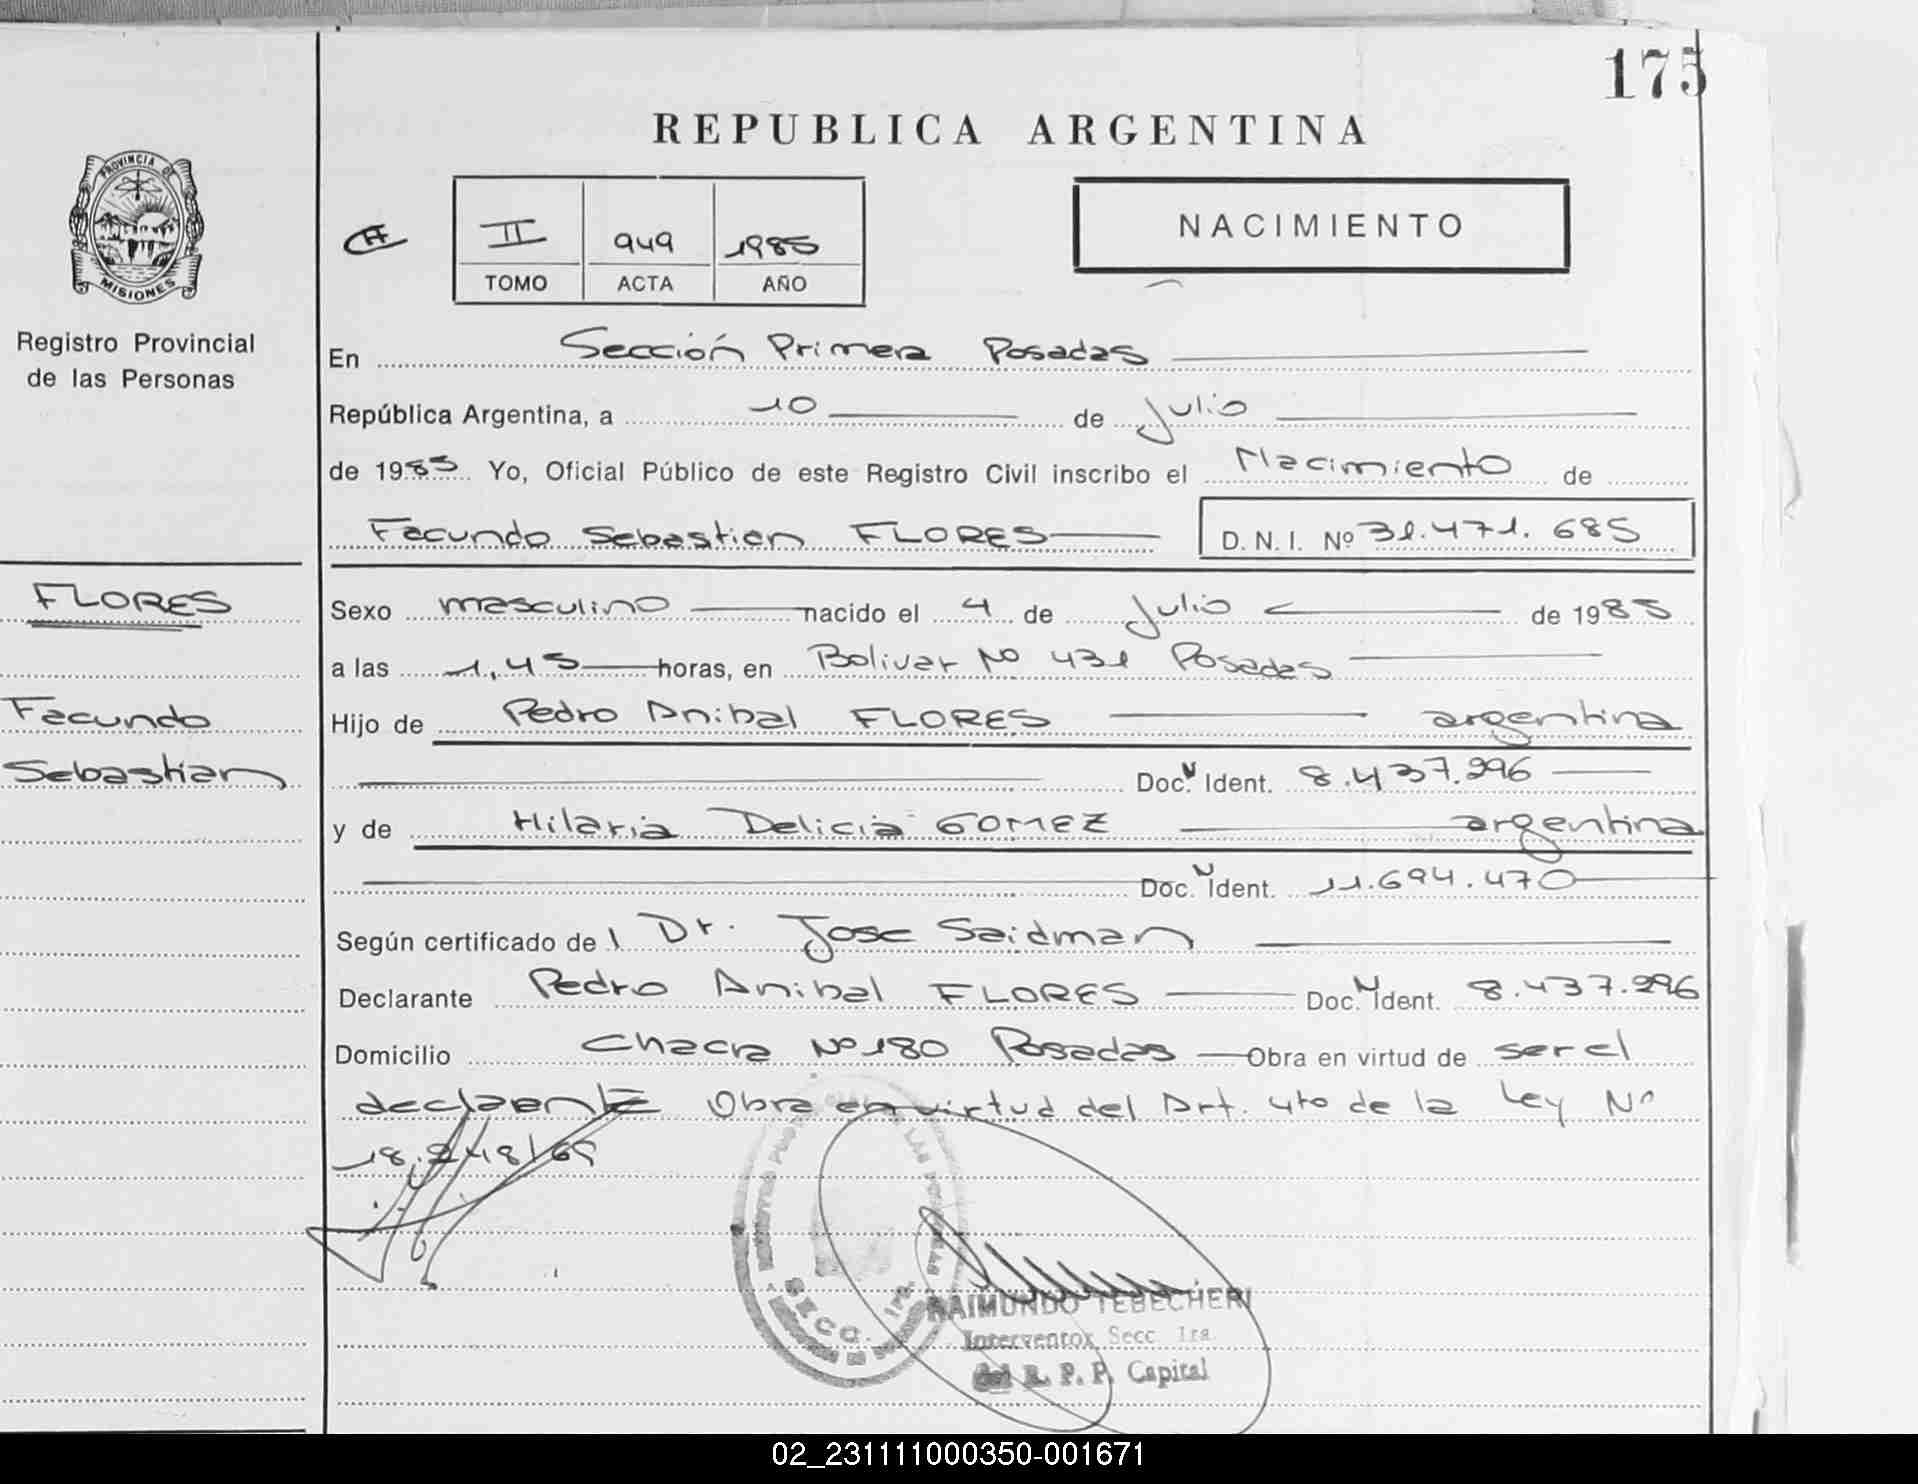 175
REPUBLICA ARGENTINA
PROVINCIA DE
MISIONES
Registro Provincial
de las Personas
II 949 1985
TOMO ACTA AÑO
NACIMIENTO
En Sección Primera Posadas
República Argentina, a 10 de Julio
de 1985 Yo, Oficial Público de este Registro Civil inscribo el Nacimiento de
Facundo Sebastian FLORES D. N. I. Nº 31.471.685
FLORES
Facundo
Sebastian
Sexo masculino nacido el 4 de Julio de 1985
a las 1,45 horas, en Bolivar Nº 431 Posadas
Hijo de Pedro Anibal FLORES argentina
Doc. N Ident. 8.437.296
y de Hilaria Delicia GOMEZ argentina
Doc. N Ident. 11.694.470
Según certificado de l Dr. Jose Saidman
Declarante Pedro Anibal FLORES Doc. N Ident. 8.437.296
Domicilio Chacra Nº 180 Posadas Obra en virtud de ser el
declarante Obra en virtud del Art. 4to de la Ley Nº
18.248/69
SECC. 1ra.
RAIMUNDO TEBECHERI
Interventor Secc 1ra.
del R. P. P. Capital
02_231111000350-001671